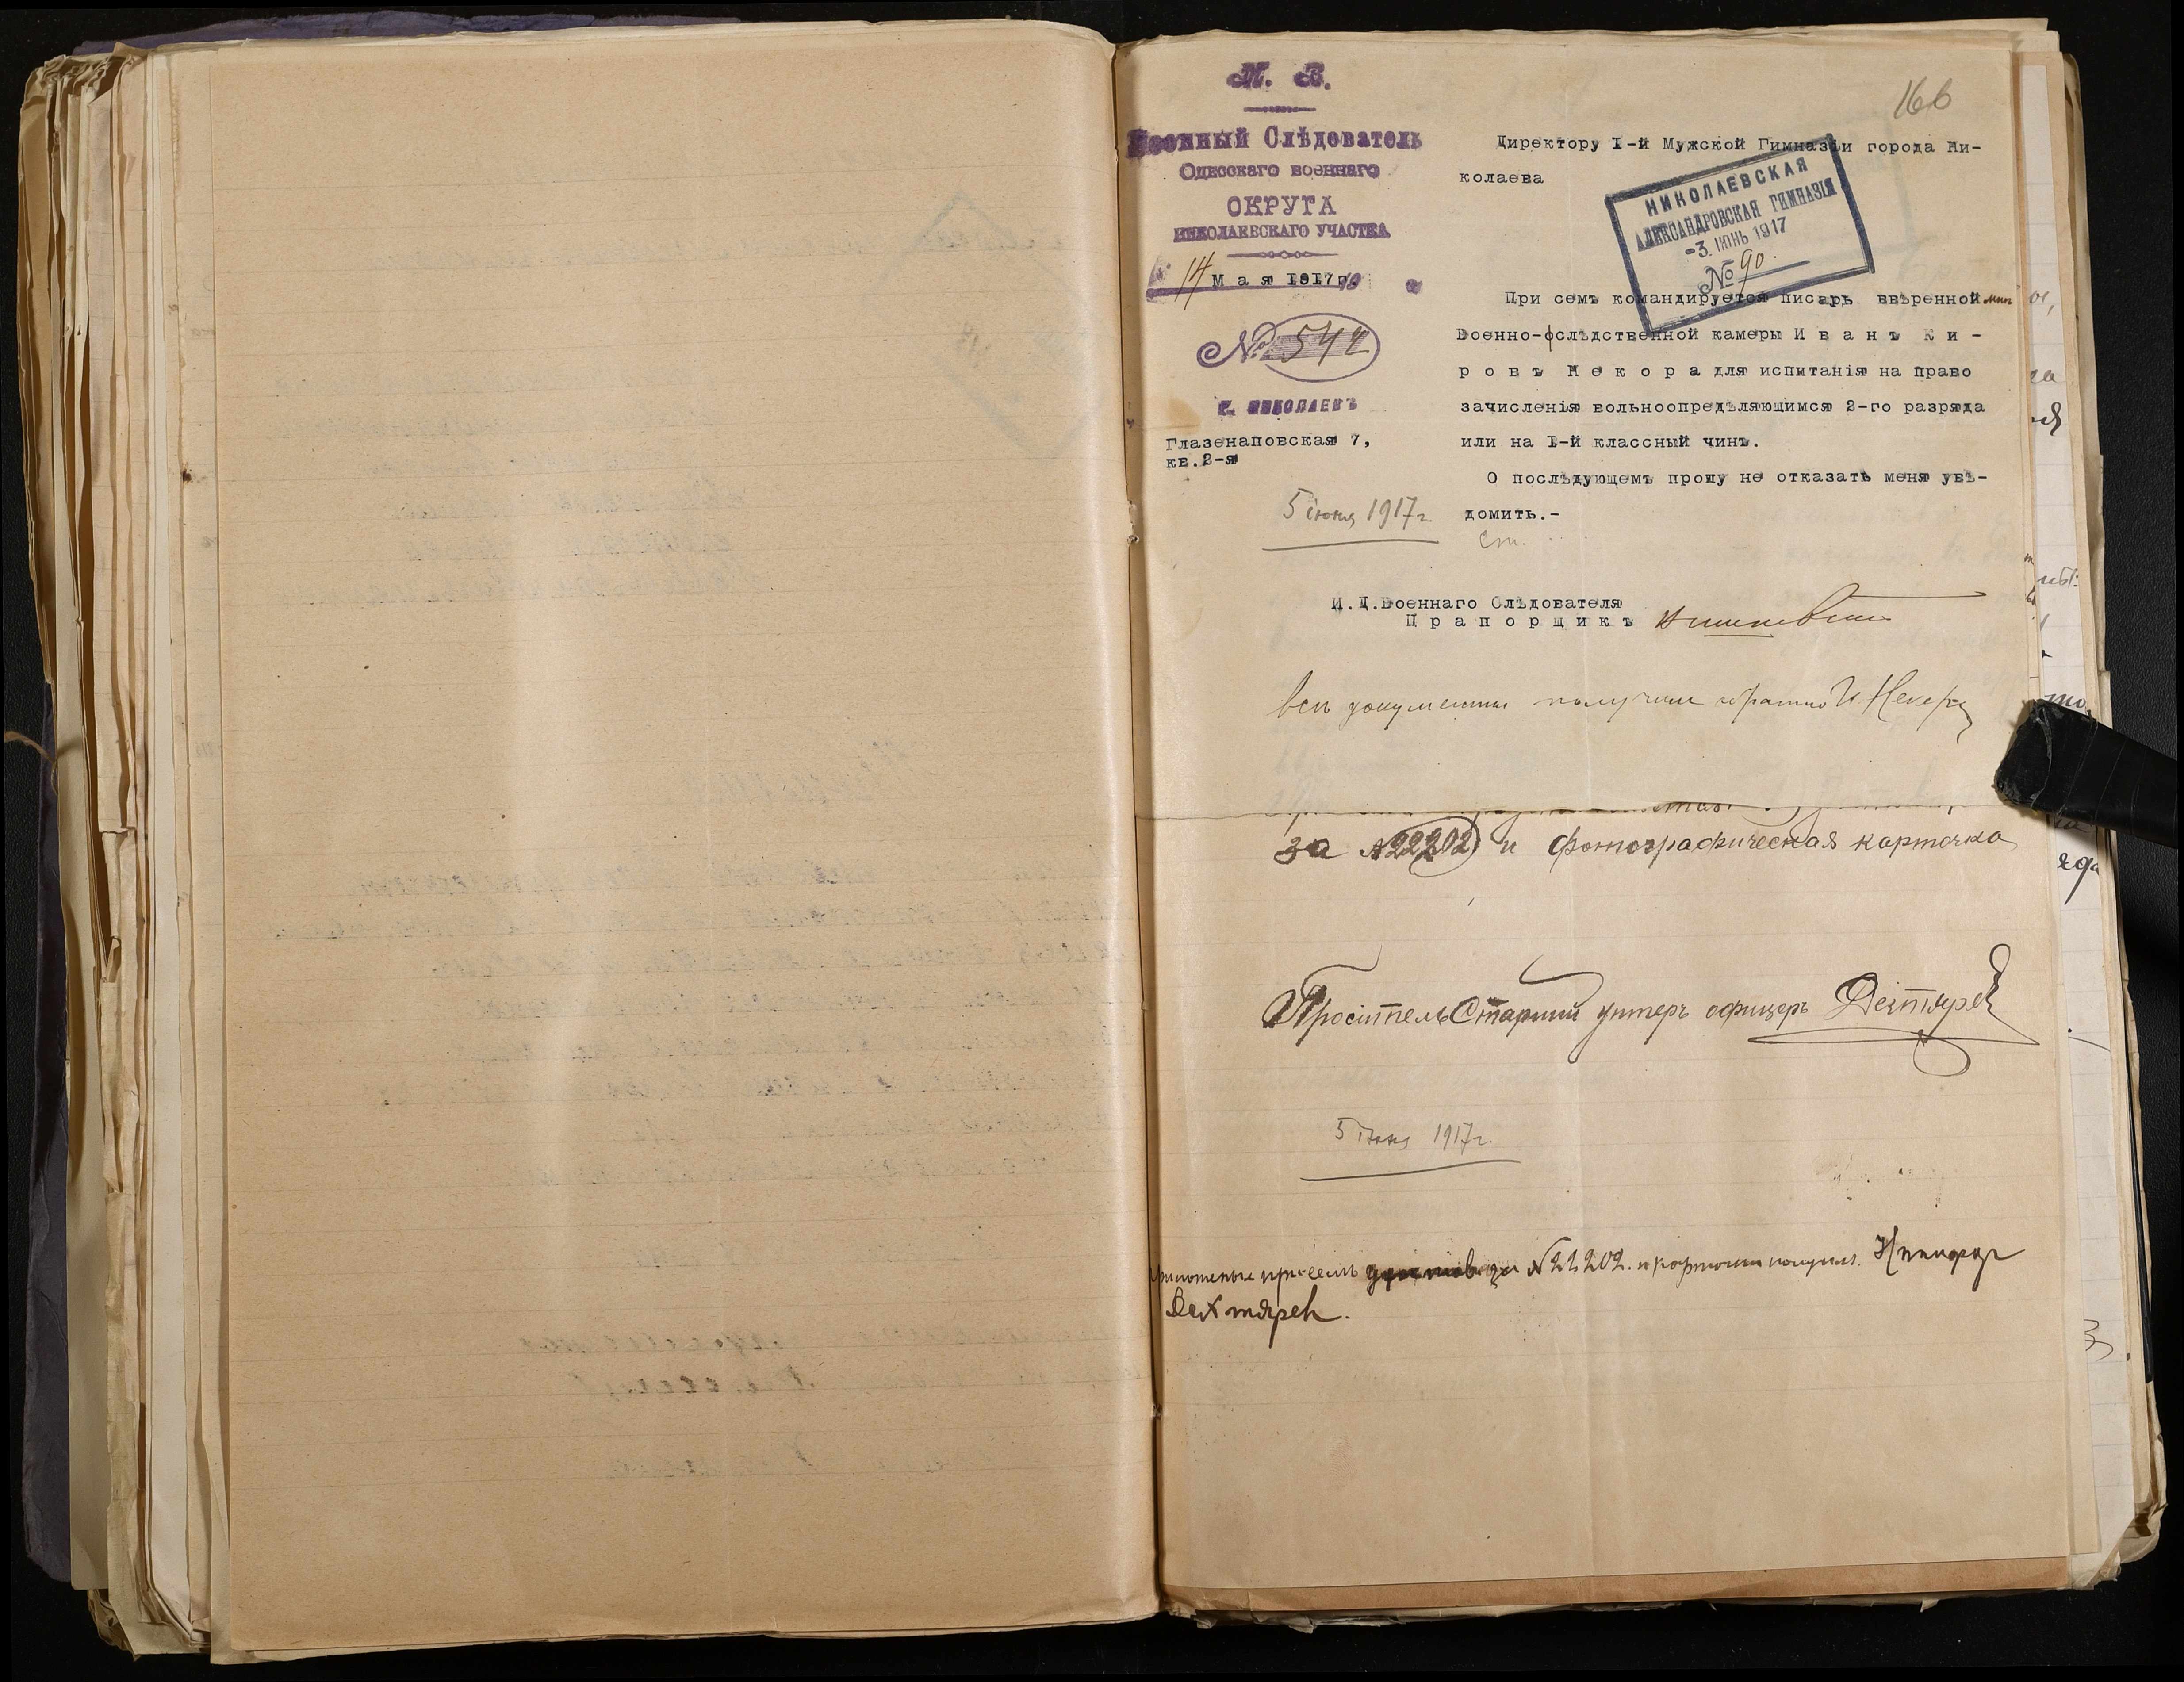 166
М. В.
Военный Слѣдователь
Одесскаго военнаго
ОКРУГА
НИКОЛАЕВСКАГО УЧАСТКА
14 Мая 1917г.
№ 544
г. НИКОЛАЕВЪ
Глазенаповская 7,
кв.2-я
Директору I-й Мужской Гимназіи города Ни-
колаева
НИКОЛАЕВСКАЯ
АЛЕКСАНДРОВСКАЯ ГИМНАЗІЯ
-3. ІЮНЬ 1917
№ 90.
При семъ командируется писарь ввѣренной мнѣ
Военно-слѣдственной камеры Иванъ Ки-
ровъ Некора для испытанія на право
зачисленія вольноопредѣляющимся 2-го разряда
или на I-й классный чинъ.
О послѣдующемъ прошу не отказать меня увѣ-
домить.-
5 іюня 1917г.
И.Д.Военнаго Слѣдователя
Прапорщикъ
всѣ документы получилъ обратно И Некора
за №22202 и фотографическая карточка
Проситель Старший унтеръ офицеръ Дехтярев
5 іюня 1917г.
№ 22202. и карточки получилъ. Никифор
Дехтярев.